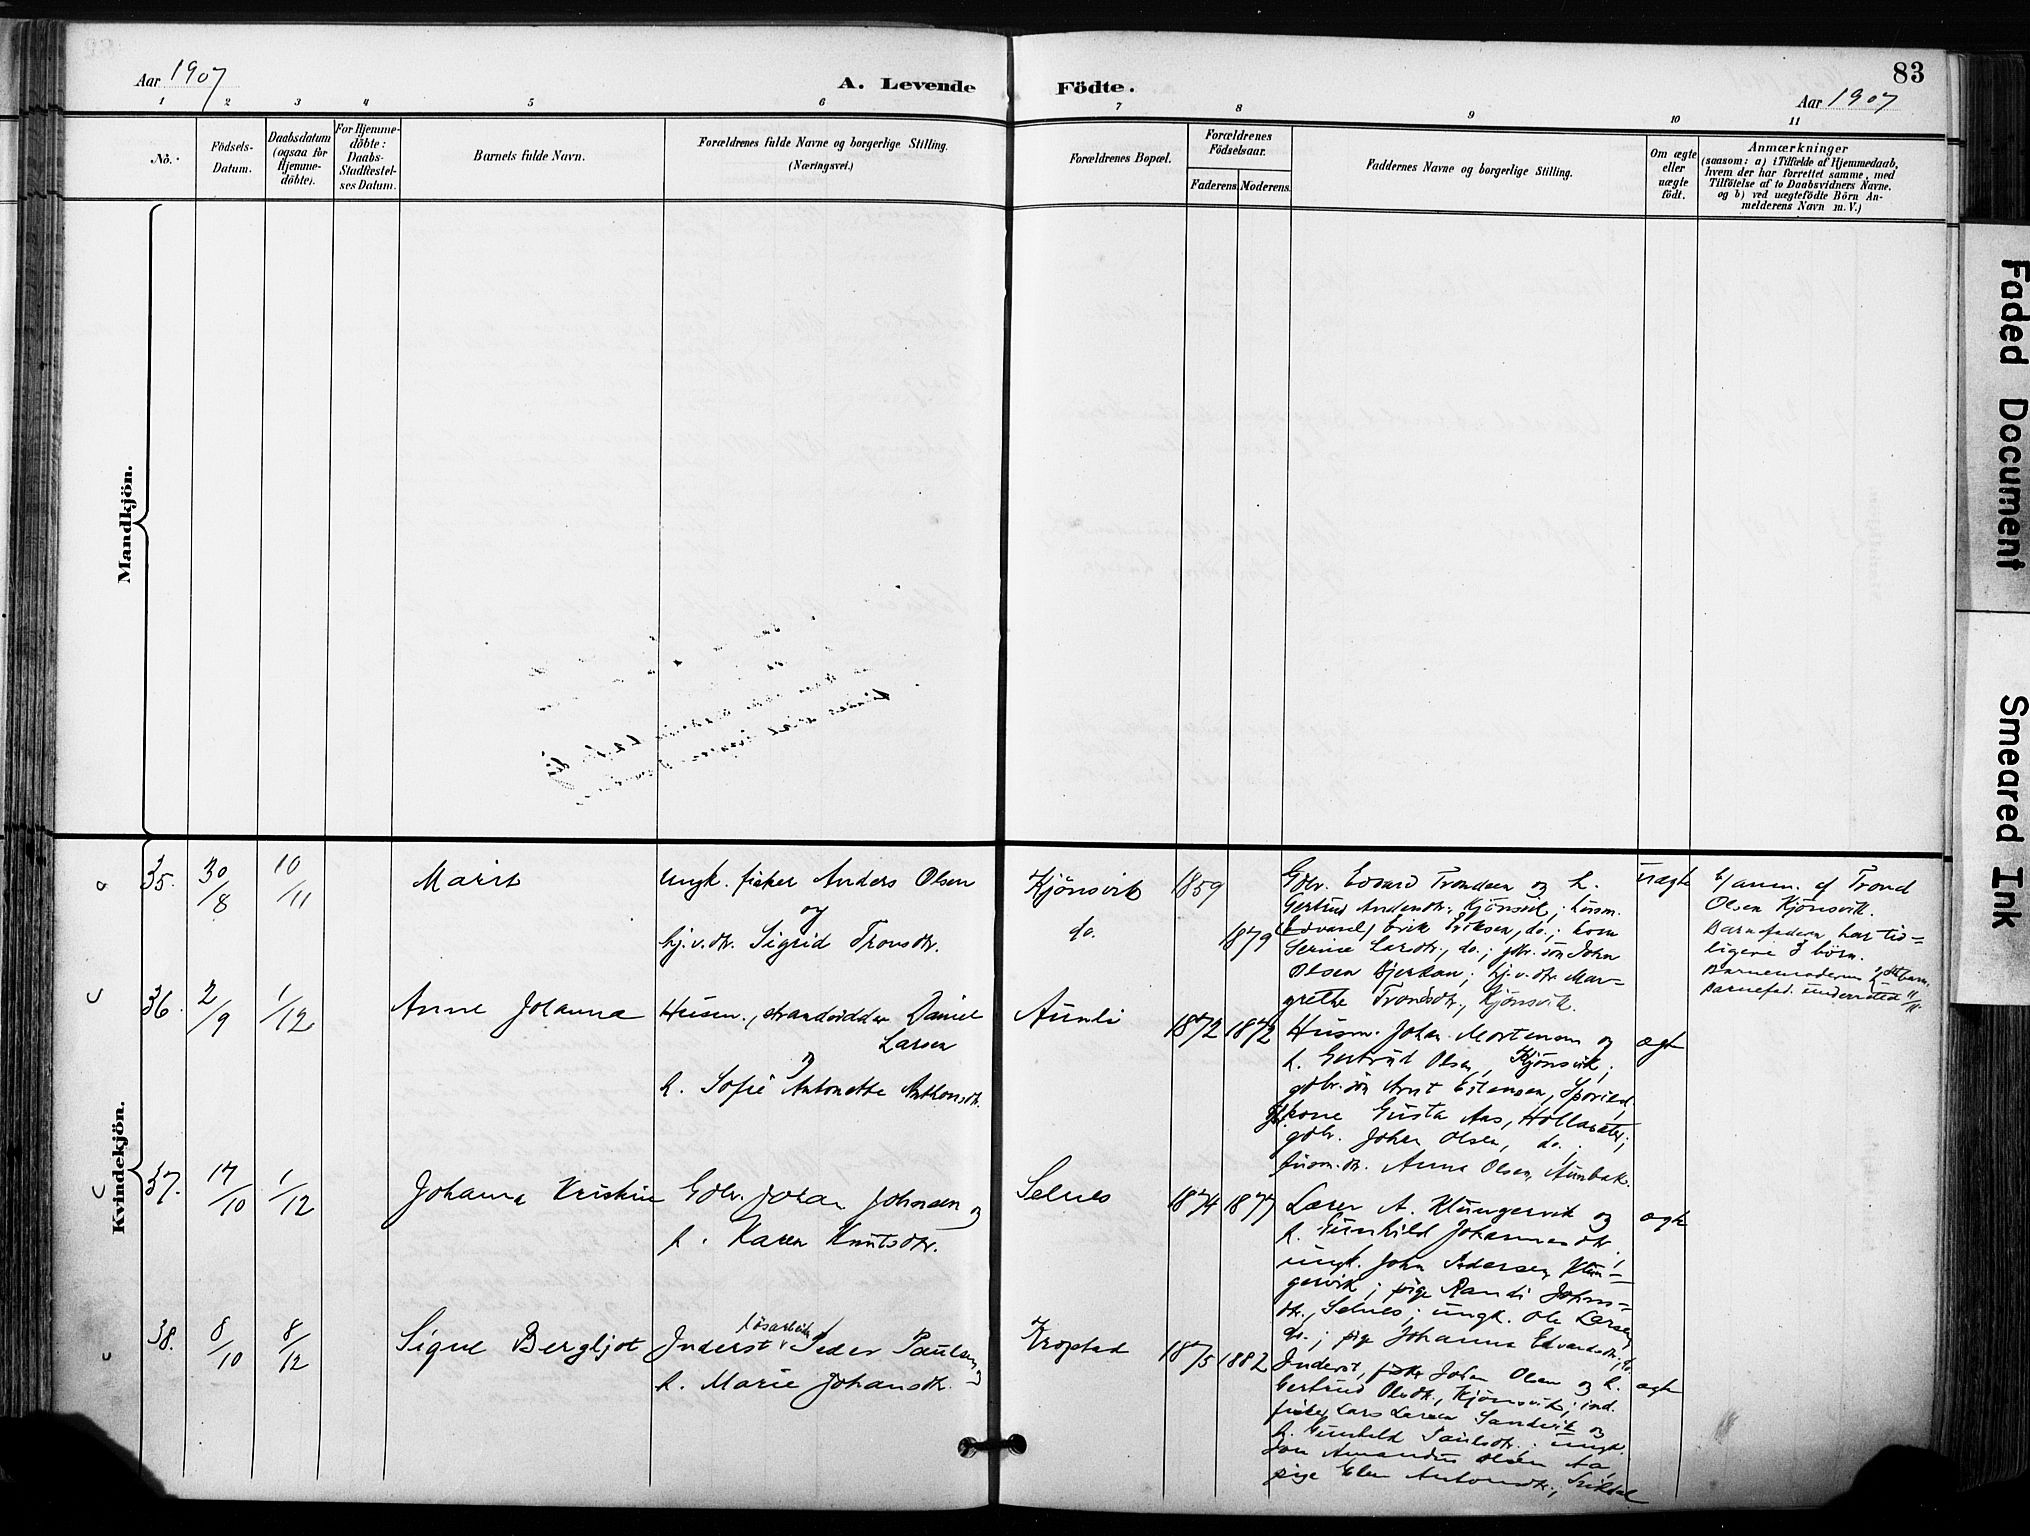 83
Aar 1907
A. Levende Födte.
Aar 1907
1 2 3 4 5 6 7 8 9 10 11
No.
Födsels-
Datum.
Daabsdatum
(ogsaa for
Hjemme-
döbte).
For Hjemme-
döbte:
Daabs-
Stadfæstel-
ses Datum.
Barnets fulde Navn.
Forældrenes fulde Navne og borgerlige Stilling.
(Næringsvei.)
Forældrenes Bopæl.
Forældrenes
Födselsaar.
Faderens. Moderens.
Faddernes Navne og borgerlige Stilling.
Om ægte
eller
uægte
födt.
Anmærkninger
(saasom: a) i Tilfælde af Hjemmedaab,
hvem der har forrettet samme, med
Tilföielse af to Daabsvidners Navne.
og b) ved uægtefödte Börn An-
melderens Navn m. V.)
Mandkjön.
Kvindekjön.
35. 30/8 10/11 Marit
Ungk. fisker Anders Olsen
og
hj.v. dtr. Sigrid Tronsdtr.
Kjönsvik
do.
1859
1879
Gdbr. Edvard Trondsen og h.
Gertrud Andersdtr., Kjönsvik; husm.
Erik Eriksen, do.; kone
Serine Larsdtr., do.; gdbr. sön John
Olsen Bjerkan; hj.v. dtr. Mar-
grethe Trondsdtr., Kjönsvik.
uægte
E/ anm. af Trond
Olsen Kjönsvik.
Barnefaderen har tid-
ligere 3 börn.
Barnemoderen 2det barn.
Barnefad. underrettet 11/11.
36. 2/9 1/12 Anne Johanna
Husm., strandsidder Daniel
Larsen
og
h. Sofie Antonette Anthonsdtr.
Aunli
1872 1872
Husm. Johan Mortensen og
h. Gertrud Olsen, Kjönsvik;
gdbr. sön Arnt Estensen,
kone Gusta Aas, Hollasæter;
gdbr. Johan Olsen, do.;
husm. dtr. Anna Olsen, Aunbak.
ægte
37. 17/10 1/12 Johanna Kristine
Gdbr. Johan Johnsen og
h. Karen Knutsdtr.
Selnes
1874 1877
Lærer A. Klungervik og
h. Gunhild Johannesdtr.;
ungk. John Pedersen Klun-
gervik; pige Randi Johns-
dtr., Selnes; ungk. Ole Larsen,
do.; pige Johanna Edvardsdtr., do.
ægte
38. 8/10 8/12 Signe Bergljot
lösarbeider
Inderst Peder Paulsen og
h. Marie Johansdtr.
Kropstad
1875 1882
Inderst, fisker Johan Olsen og h.
Gertrud Olsdtr., Kjönsvik; ind.
fisker Lars Larsen Sandvik og
h. Gunhild Paulsdtr.; ungk.
Jon Amandus Olsen Aa,
pige Elen Antonsdtr.,
ægte
Faded Document
Smeared Ink